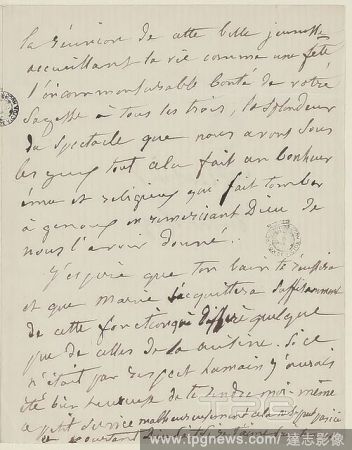 la réunion de cette belle jeunesse
accueillant la vie comme une fête
l'incommensurable bonté de votre
Sagesse à tous les trois, la splendeur
du spectacle que nous avons sous
les yeux tout cela fait un bonheur
ému et religieux qui fait tomber
à genoux en remerciant Dieu de
nous l'avoir donné..
J'espère que ton bain te réussira
et que Marie s'acquittera suffisamment
de cette fonction qui diffère quelque
peu de celles de la cuisine. Si ce
n'était par respect humain j'aurais
été bien heureux de te rendre moi-même
ce petit service malheureusement cela ne se peut pas ici
et pourtant
www.tpgnews.com / 達志影像